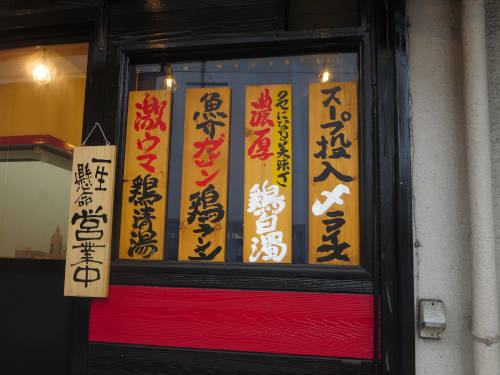 一生
懸命
営業中
激ウマ
鶏清湯
魚介ガツン
鶏ラーメン
濃厚
クセになる美味さ
鶏白濁
スープ投入
〆ライス